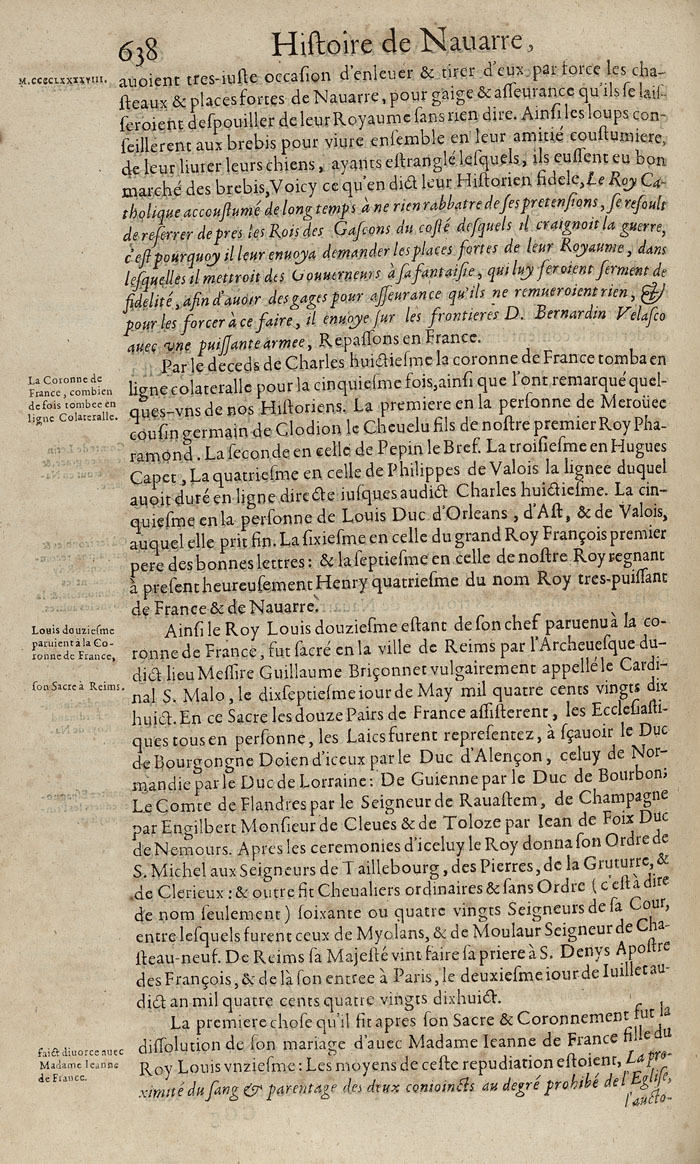 638 Hiſtoire de Nauarre,
M.CCCCLXXXXVIII.
auoient tres-iuſte occaſion d'enleuer & tirer d'eux par force les cha-
ſteaux & places fortes de Nauarre, pour gaige & aſſeurance qu'ils ſe laiſ-
ſeroient deſpouiller de leur Royaume ſans rien dire. Ainſi les loups con-
ſeillerent aux brebis pour viure enſemble en leur amitié couſtumiere,
de leur liurer leurs chiens, ayants eſtranglé leſquels, ils euſſent eu bon
marché des brebis, Voicy ce qu'en dict leur Hiſtorien fidele, Le Roy Ca-
tholique accouſtumé de long temps à ne rien rabbatre de ſes pretenſions, ſe reſoult
de reſerrer de pres les Rois des Gaſcons du coſté deſquels il craignoit la guerre,
c'eſt pourquoy il leur enuoya demander les places fortes de leur Royaume, dans
leſquelles il mettroit des Gouuerneurs à ſa fantaiſie, qui luy feroient ferment de
fidelité, afin d'auoir des gages pour aſſeurance qu'ils ne remueroient rien, &
pour les forcer à ce faire, il enuoye ſur les frontieres D. Bernardin Velaſco
auec vne puiſſante armee, Repaſſons en France.
La Coronne de
France, combien
de fois tombee en
ligne Colateralle.
Par le deceds de Charles huictieſme la coronne de France tomba en
ligne colateralle pour la cinquieſme fois, ainſi que l'ont remarqué quel-
ques-vns de nos Hiſtoriens. La premiere en la perſonne de Meroüee
couſin germain de Clodion le Cheuelu fils de noſtre premier Roy Pha-
ramond. La ſeconde en celle de Pepin le Bref. La troiſieſme en Hugues
Capet, La quatrieſme en celle de Philippes de Valois la lignee duquel
auoit duré en ligne directe iuſques audict Charles huictieſme. La cin-
quieſme en la perſonne de Louis Duc d'Orleans, d'Aſt, & de Valois,
auquel elle prit fin. La ſixieſme en celle du grand Roy François premier
pere des bonnes lettres: & la ſeptieſme en celle de noſtre Roy regnant
à preſent heureuſement Henry quatrieſme du nom Roy tres-puiſſant
de France & de Nauarre.
Louis douzieſme
paruient à la Co-
ronne de France,
ſon Sacre à Reims.
Ainſi le Roy Louis douzieſme eſtant de ſon chef paruenu à la co-
ronne de France, fut ſacré en la ville de Reims par l'Archeueſque du-
dict lieu Meſſire Guillaume Briçonnet vulgairement appellé le Cardi-
nal S. Malo, le dixſeptieſme iour de May mil quatre cents vingts dix
huict. En ce Sacre les douze Pairs de France aſſiſterent, les Eccleſiaſti-
ques tous en perſonne, les Laics furent repreſentez, à ſçauoir le Duc
de Bourgongne Doien d'iceux par le Duc d'Alençon, celuy de Nor-
mandie par le Duc de Lorraine: De Guienne par le Duc de Bourbon;
Le Comte de Flandres par le Seigneur de Rauaſtem, de Champagne
par Engilbert Monſieur de Cleues & de Toloze par Iean de Foix Duc
de Nemours. Apres les ceremonies d'iceluy le Roy donna ſon Ordre de
S. Michel aux Seigneurs de Taillebourg, des Pierres, de la Gruturre, &
de Clerieux: & outre fit Cheualiers ordinaires & ſans Ordre (c'eſt à dire
de nom ſeulement) ſoixante ou quatre vingts Seigneurs de ſa Cour,
entre leſquels furent ceux de Myolans, & de Moulaur Seigneur de Cha-
ſteau-neuf. De Reims ſa Majeſté vint faire ſa priere à S. Denys Apoſtre
des François, & de là ſon entree à Paris, le deuxieſme iour de Iuillet au-
dict an mil quatre cents quatre vingts dixhuict.
faict diuorce auec
Madame Ieanne
de France.
La premiere choſe qu'il fit apres ſon Sacre & Coronnement fut la
diſſolution de ſon mariage d'auec Madame Ieanne de France fille du
Roy Louis vnzieſme: Les moyens de ceſte repudiation eſtoient, La pro-
ximité du ſang & parentage des deux conioincts au degré prohibé de l'Egliſe,
l'aucto-